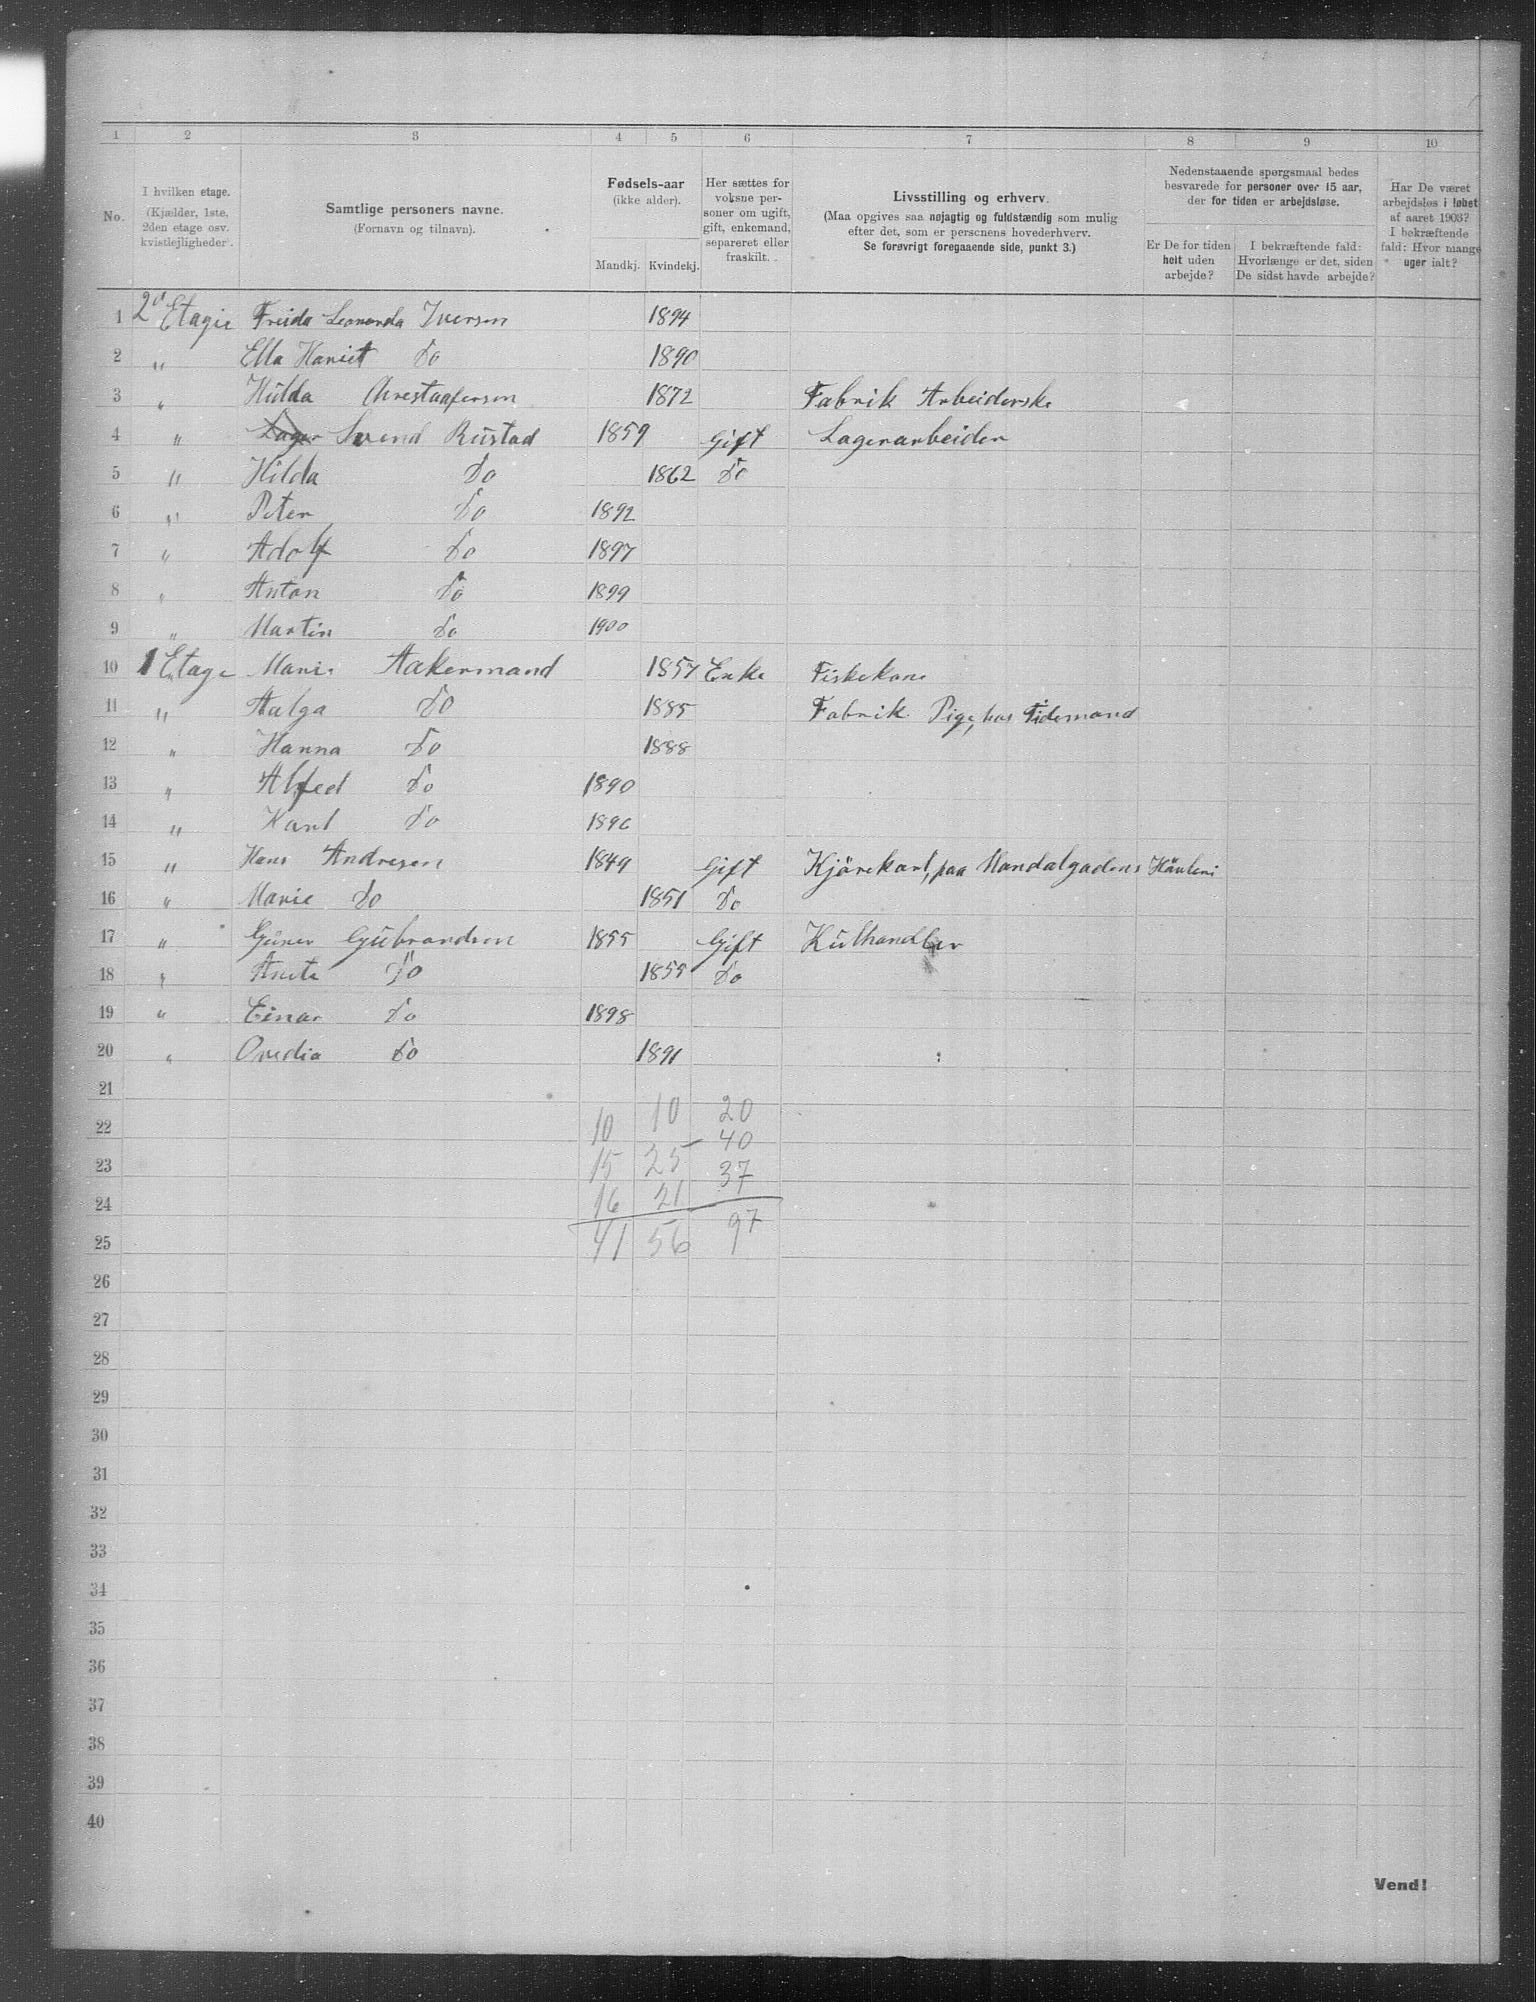 1 2 3 4 5 6 7 8 9 10
No.
I hvilken etage.
(Kjælder, 1ste,
2den etage osv.
kvistlejligheder).
Samtlige personers navne.
(Fornavn og tilnavn).
Fødsels-aar
(ikke alder).
Mandkj. Kvindekj.
Her sættes for
voksne per-
soner om ugift,
gift, enkemand,
separeret eller
fraskilt.
Livsstilling og erhverv.
(Maa opgives saa nøjagtig og fuldstændig som mulig
efter det, som er personens hovederhverv.
Se forøvrigt foregaaende side, punkt 3.)
Nedenstaaende spørgsmaal bedes
besvarede for personer over 15 aar,
der for tiden er arbejdsløse.
Er De for tiden
helt uden
arbejde?
I bekræftende fald:
Hvorlænge er det, siden
De sidst havde arbejde?
Har De været
arbejdsløs i løbet
af aaret 1903?
I bekræftende
fald: Hvor mange
uger ialt?
1 2d Etagie Freida Leonarda Iversen 1894
2 " Ella Hariet Do 1890
3 " Hulda Chrestaafersen 1872 Fabrik Arbeiderske
4 " Lager Svend Rustad 1859 Gift Lagerarbeider
5 " Hilda Do 1862 Do
6 " Peter Do 1892
7 " Adolf Do 1897
8 " Anton Do 1899
9 " Martin Do 1900
10 1 Etage Marie Aakermand 1857 Enke Fiskekone
11 " Halga Do 1885 Fabrik Pige, hos Tidemand
12 " Hanna Do 1888
13 " Alfed Do 1890
14 " Karl Do 1896
15 " Hans Andresen 1849 Gift Kjörekarl, paa Mandalgadens
16 " Marie Do 1851 Do
17 " Gubrandsen 1855 Gift Kulhandler
18 " Do 1855 Do
19 " Einar Do 1898
20 " Ovedia Do 1891
21
22 10 10 20
23 15 25 40
24 16 21 37
25 41 56 97
26
27
28
29
30
31
32
33
34
35
36
37
38
39
40
Vend!